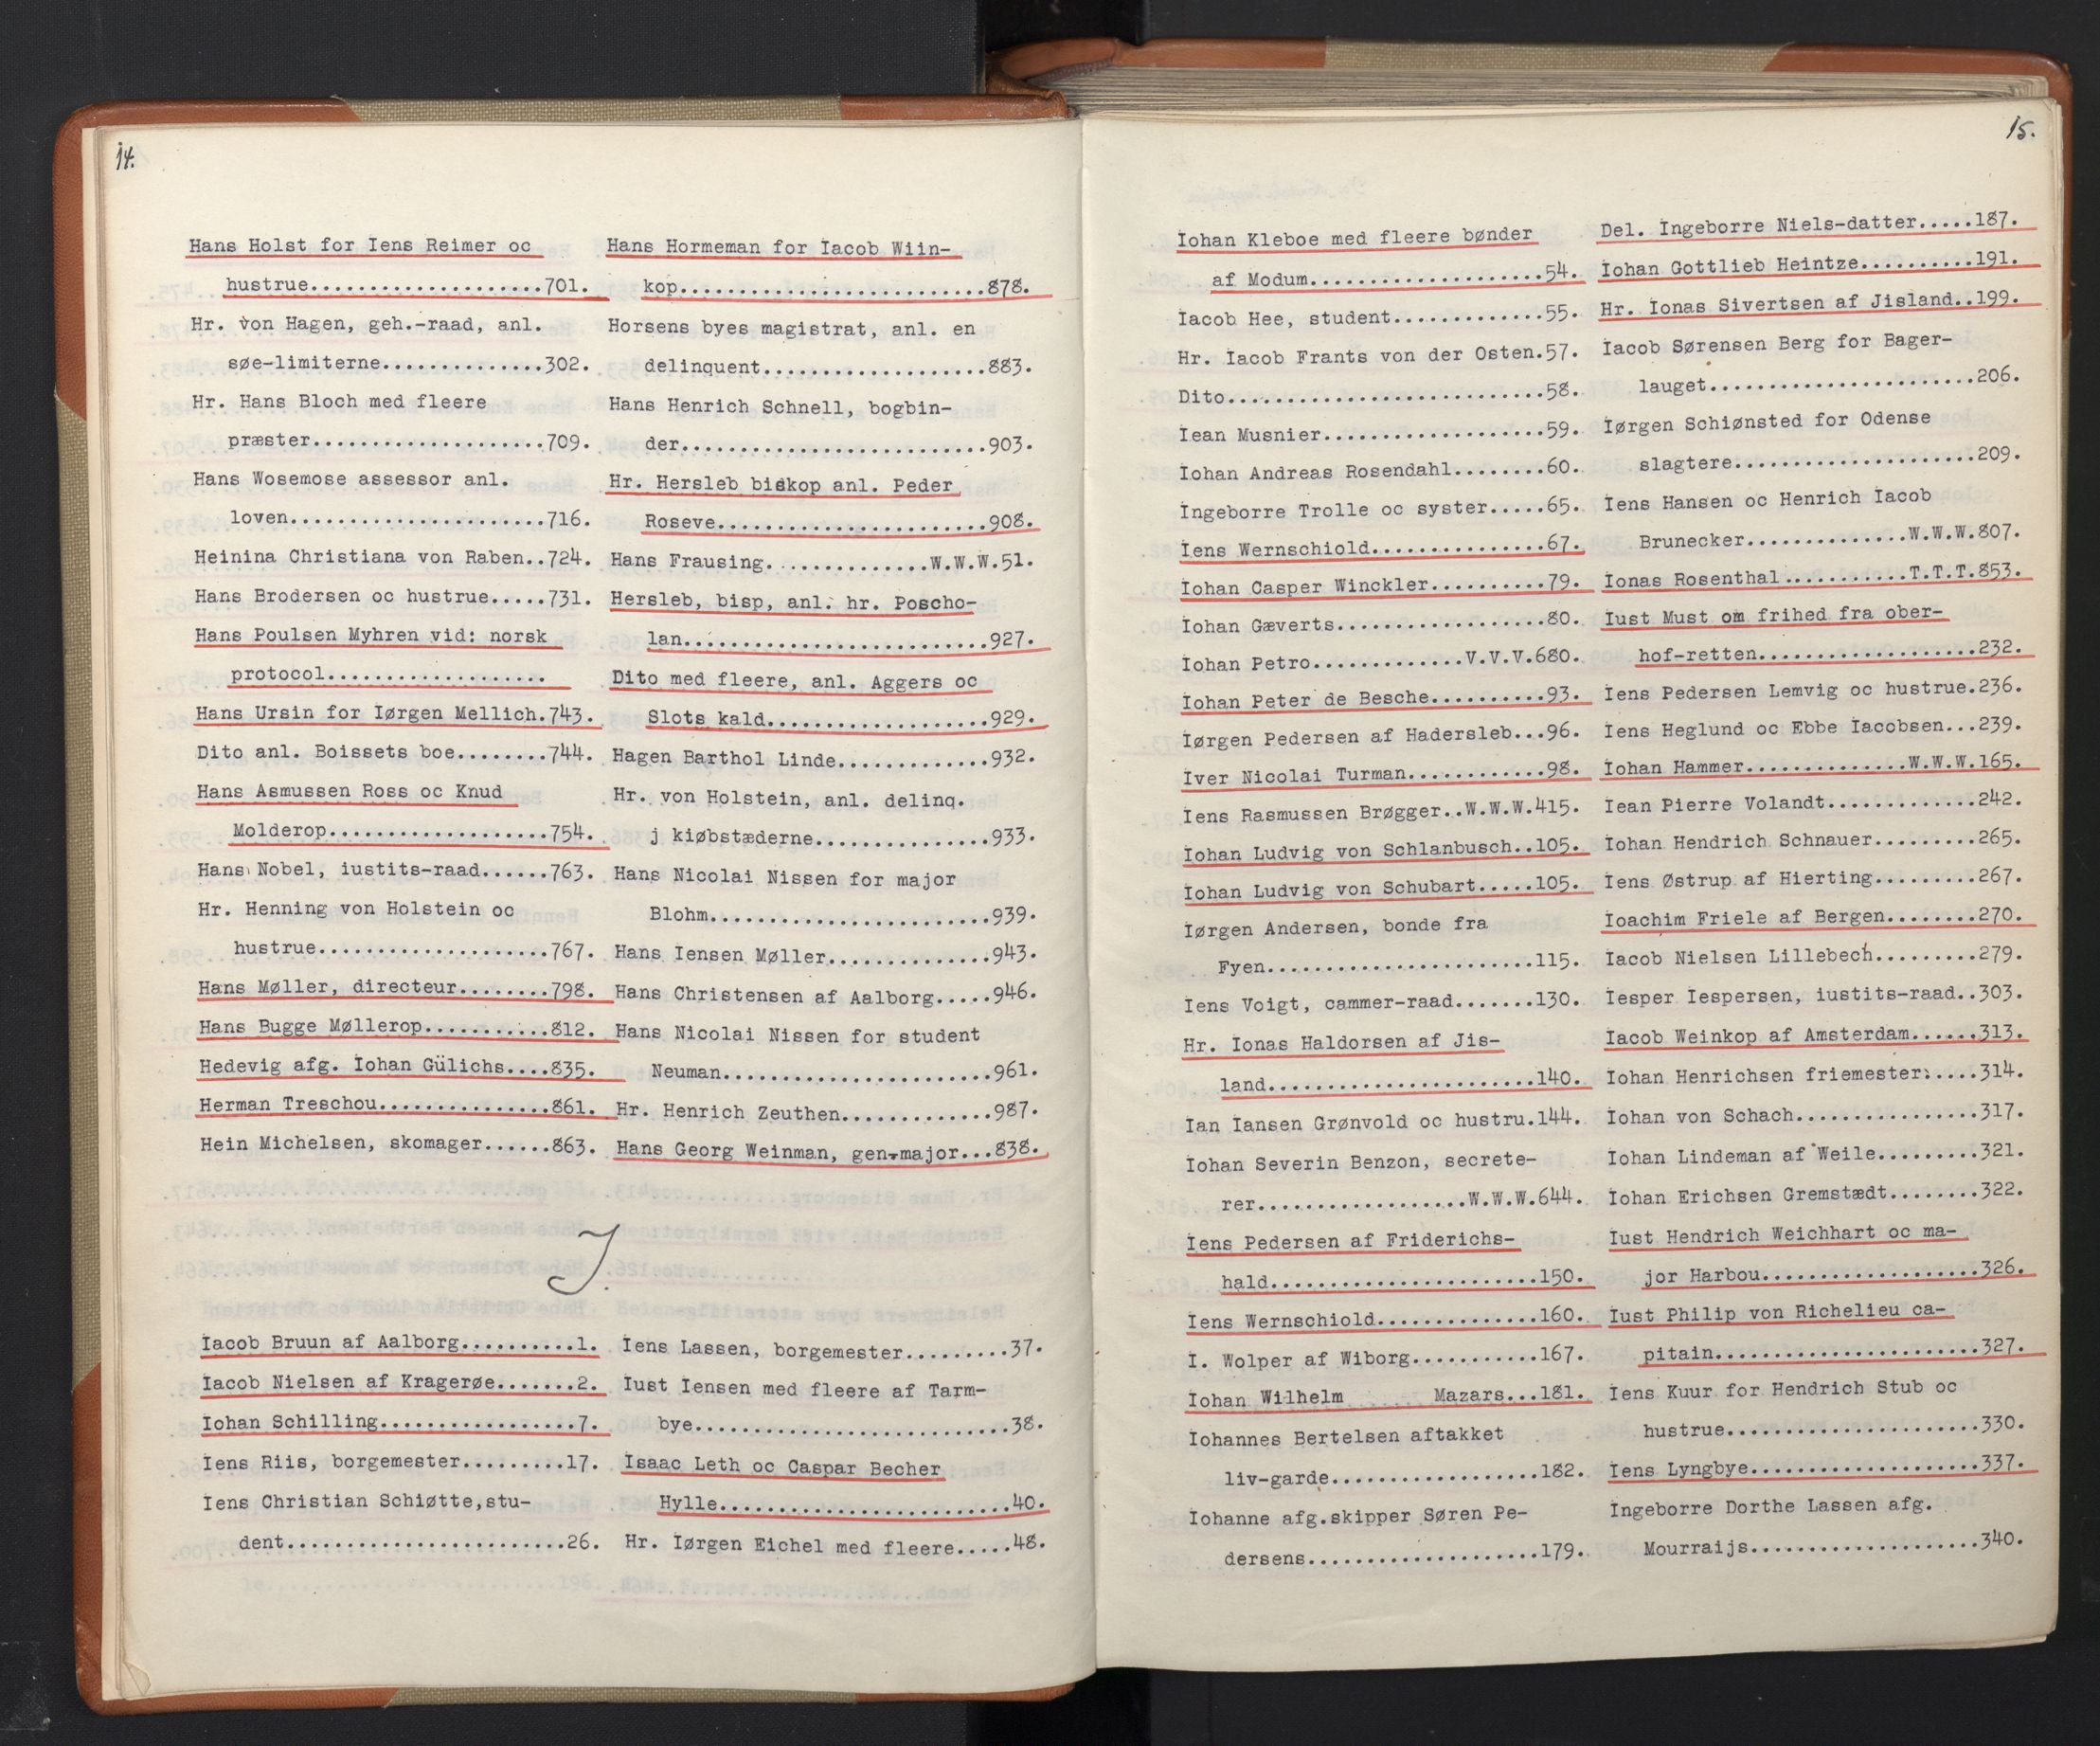 14.
Hans Holst for Iens Reimer oc
hustrue....................701.
Hr. von Hagen, geh.-raad, anl.
søe-limiterne..............302.
Hr. Hans Bloch med fleere
præster....................709.
Hans Wosemose assessor anl.
loven......................716.
Heinina Christiana von Raben..724.
Hans Brodersen oc hustrue.....731.
Hans Poulsen Myhren vid: norsk
protocol...................
Hans Ursin for Iørgen Mellich.743.
Dito anl. Boissets boe........744.
Hans Asmussen Ross oc Knud
Molderop...................754.
Hans Nobel, iustits-raad......763.
Hr. Henning von Holstein oc
hustrue....................767.
Hans Møller, directeur........798.
Hans Bugge Møllerop...........812.
Hedevig afg. Iohan Gülichs....835.
Herman Treschou...............861.
Hein Michelsen, skomager......863.
Hans Hormeman for Iacob Wiin-
kop..........................878.
Horsens byes magistrat, anl. en
delinquent...................883.
Hans Henrich Schnell, bogbin-
der..........................903.
Hr. Hersleb biskop anl. Peder
Roseve.......................908.
Hans Frausing..............W.W.W.51.
Hersleb, bisp, anl. hr. Poscho-
lan..........................927.
Dito med fleere, anl. Aggers oc
Slots kald...................929.
Hagen Barthol Linde.............932.
Hr. von Holstein, anl. delinq.
j kiøbstæderne...............933.
Hans Nicolai Nissen for major
Blohm........................939.
Hans Iensen Møller..............943.
Hans Christensen af Aalborg.....946.
Hans Nicolai Nissen for student
Neuman.......................961.
Hr. Henrich Zeuthen.............987.
Hans Georg Weinman, gen-major...838.
J.
Iacob Bruun af Aalborg..........1.
Iacob Nielsen af Kragerøe.......2.
Iohan Schilling.................7.
Iens Riis, borgemester.........17.
Iens Christian Schiøtte,stu-
dent........................26.
Iens Lassen, borgemester.........37.
Iust Iensen med fleere af Tarm-
bye...........................38.
Isaac Leth oc Caspar Becher
Hylle.........................40.
Hr. Iørgen Eichel med fleere.....48.
15.
Iohan Kleboe med fleere bønder
af Modum....................54.
Iacob Hee, student.............55.
Hr. Iacob Frants von der Osten.57.
Dito...........................58.
Iean Musnier...................59.
Iohan Andreas Rosendahl........60.
Ingeborre Trolle oc syster.....65.
Iens Wernschiold...............67.
Iohan Casper Winckler..........79.
Iohan Gæverts..................80.
Iohan Petro.............V.V.V.680.
Iohan Peter de Besche..........93.
Iørgen Pedersen af Hadersleb...96.
Iver Nicolai Turman............98.
Iens Rasmussen Brøgger..W.W.W.415.
Iohan Ludvig von Schlanbusch..105.
Iohan Ludvig von Schubart.....105.
Iørgen Andersen, bonde fra
Fyen.......................115.
Iens Voigt, cammer-raad.......130.
Hr. Ionas Haldorsen af Jis-
land.......................140.
Ian Iansen Grønvold oc hustru.144.
Iohan Severin Benzon, secrete-
rer..................W.W.W.644.
Iens Pedersen af Friderichs-
hald.......................150.
Iens Wernschiold..............160.
I. Wolper af Wiborg...........167.
Iohan Wilhelm Mazars...181.
Iohannes Bertelsen aftakket
liv-garde..................182.
Iohanne afg.skipper Søren Pe-
dersens....................179.
Del. Ingeborre Niels-datter.....187.
Iohan Gottlieb Heintze..........191.
Hr. Ionas Sivertsen af Jisland..199.
Iacob Sørensen Berg for Bager-
lauget.......................206.
Iørgen Schiønsted for Odense
slagtere.....................209.
Iens Hansen oc Henrich Iacob
Brunecker..............W.W.W.807.
Ionas Rosenthal...........T.T.T.853.
Iust Must om frihed fra ober-
hof-retten...................232.
Iens Pedersen Lemvig oc hustrue.236.
Iens Heglund oc Ebbe Iacobsen...239.
Iohan Hammer..............W.W.W.165.
Iean Pierre Volandt.............242.
Iohan Hendrich Schnauer.........265.
Iens Østrup af Hierting.........267.
Ioachim Friele af Bergen........270.
Iacob Nielsen Lillebech.........279.
Iesper Iespersen, iustits-raad..303.
Iacob Weinkop af Amsterdam......313.
Iohan Henrichsen friemester.....314.
Iohan von Schach................317.
Iohan Lindeman af Weile.........321.
Iohan Erichsen Gremstædt........322.
Iust Hendrich Weichhart oc ma-
jor Harbou...................326.
Iust Philip von Richelieu ca-
pitain.......................327.
Iens Kuur for Hendrich Stub oc
hustrue......................330.
Iens Lyngbye....................337.
Ingeborre Dorthe Lassen afg.
Mourraijs....................340.